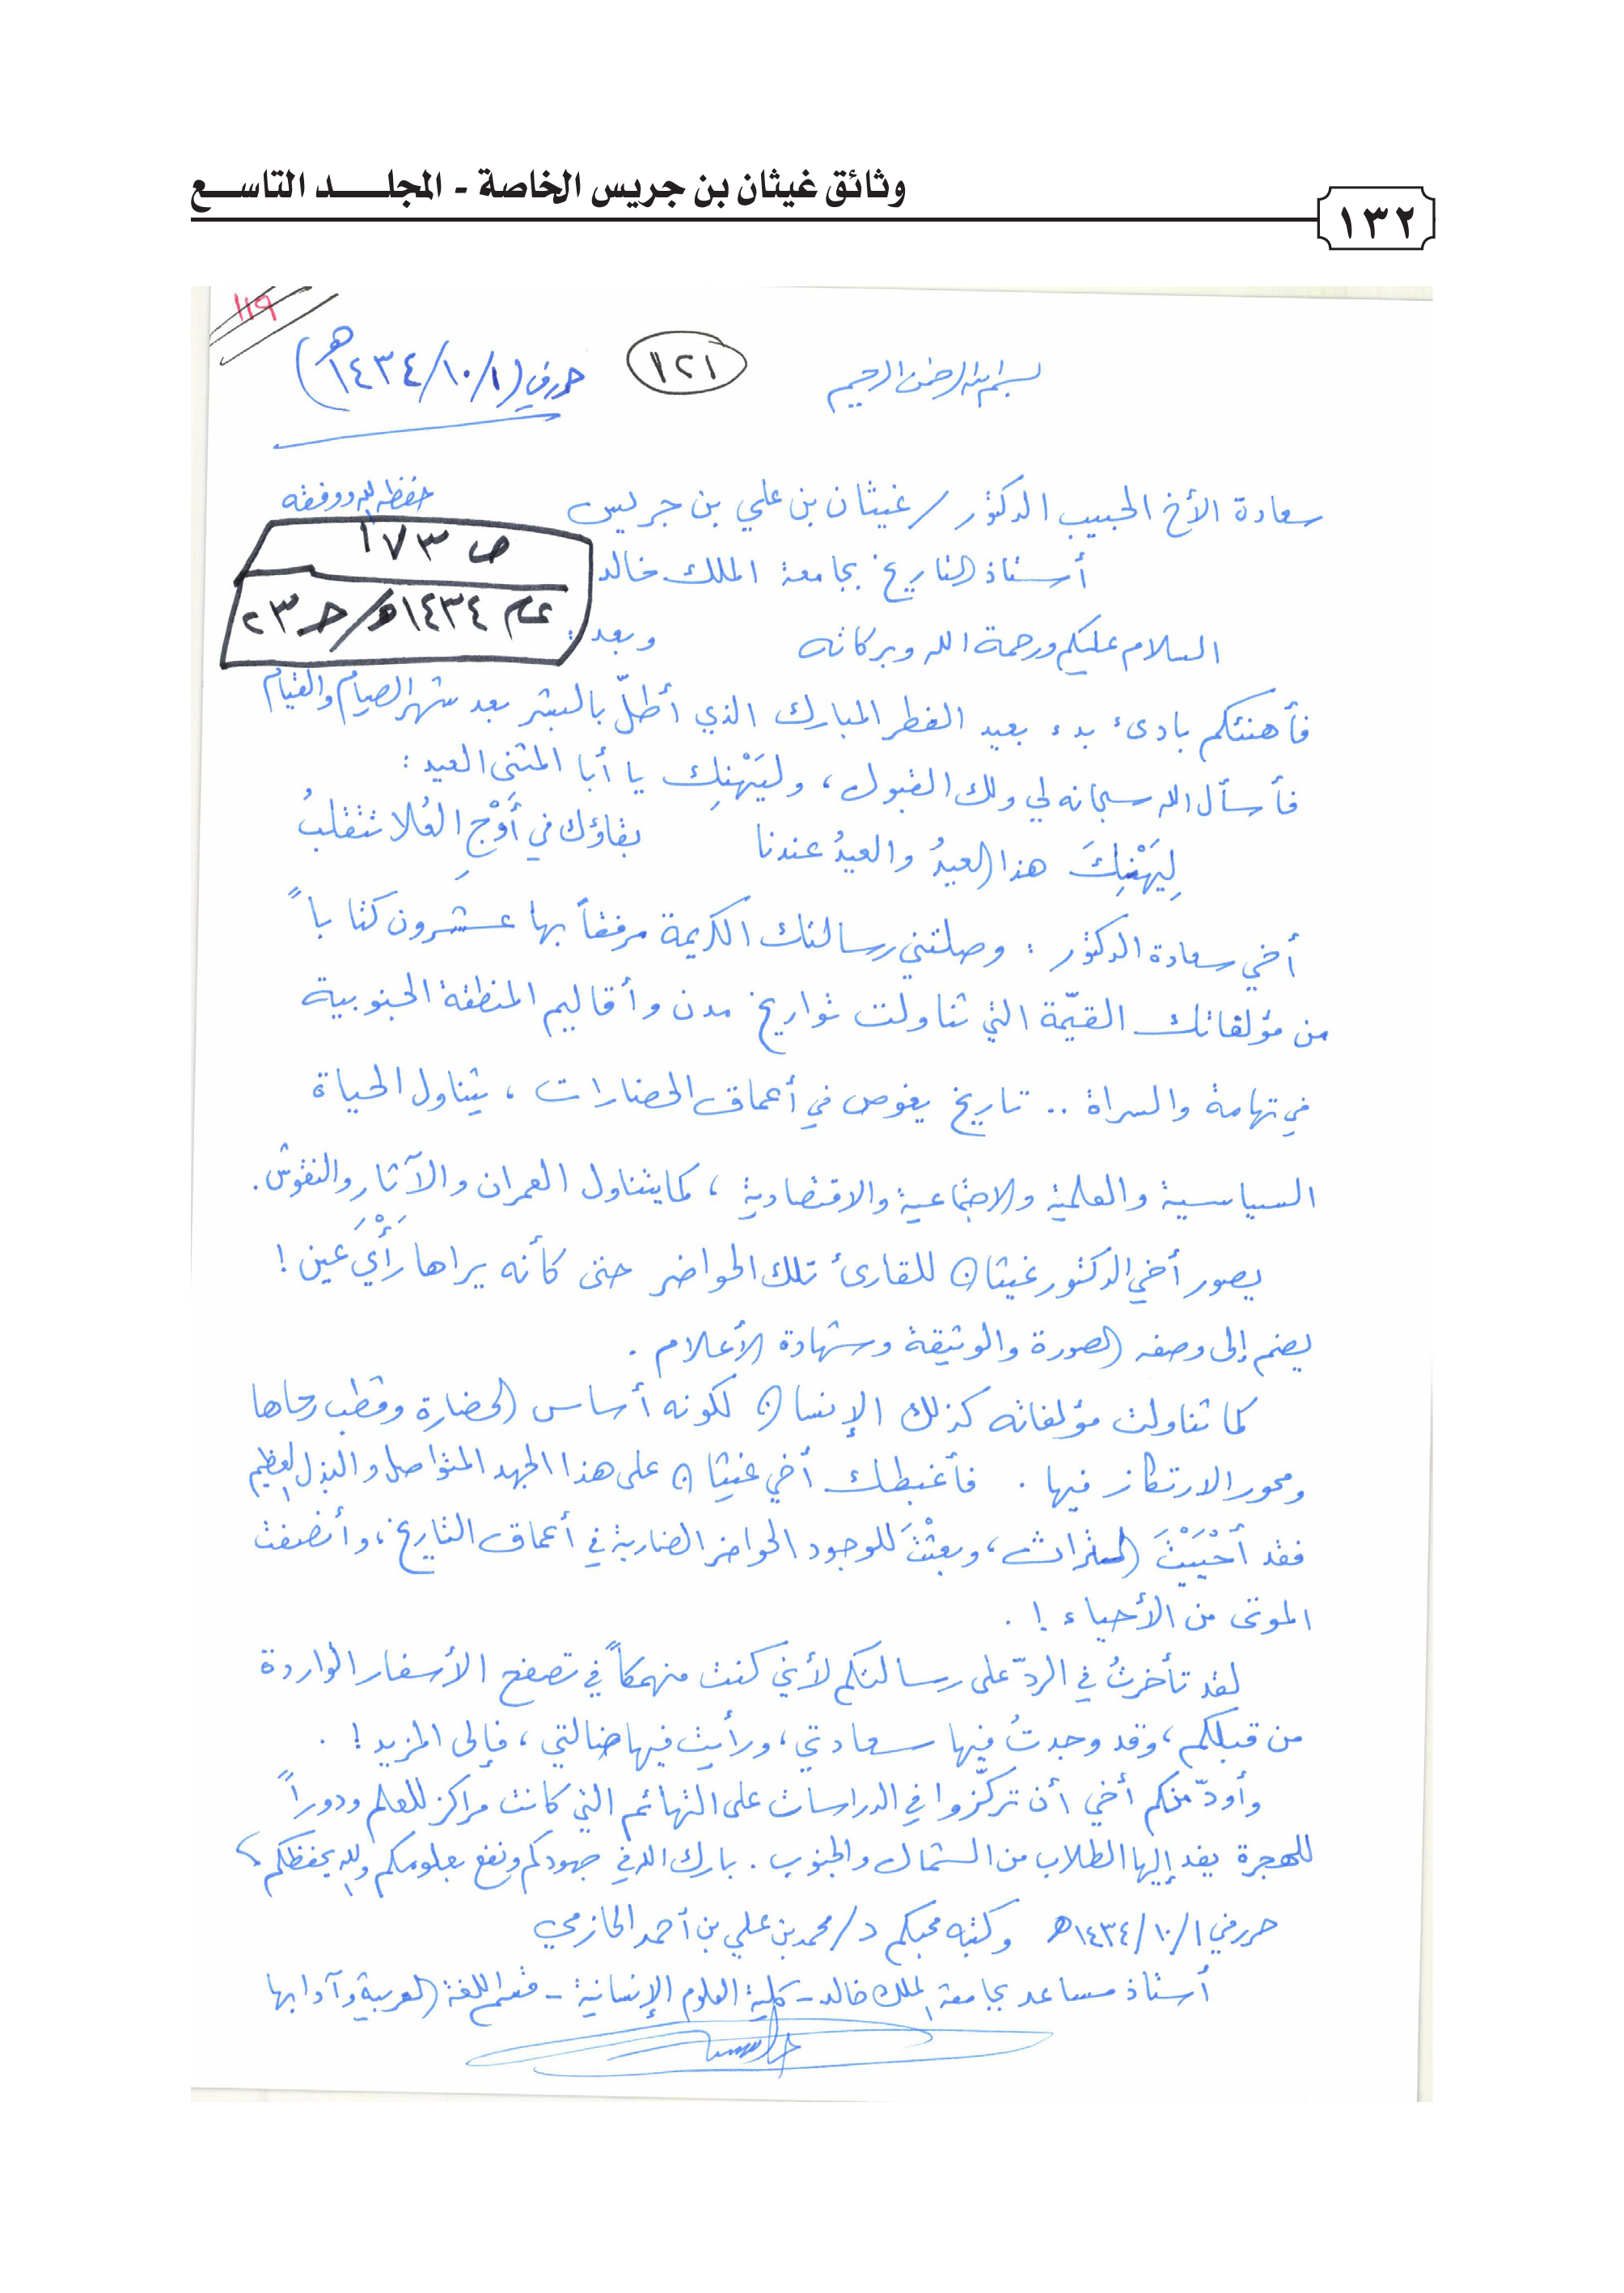 وثائق غيثان بن جريس الخاصة - المجلـــــد التاســـع
١٣٢
١١٩
بسم الله الرحمن الرحيم
١٢١
حرر في (١٤٣٤/١٠/١هـ)
سعادة الأخ الحبيب الدكتور / غيثان بن علي بن جريس حفظه الله ووفقه
أستاذ التاريخ بجامعة الملك خالد
ص ١٧٣
عام ١٤٣٤هـ / حـ ٢٣
السلام عليكم ورحمة الله وبركاته وبعد :
فأهنئكم بادىء بدء بعيد الفطر المبارك الذي أطلّ بالبشر بعد شهر الصيام والقيام
فأسأل الله سبحانه لي ولك القبول ، وليَهْنِك يا أبا المثنى العيد :
لِيَهْنِكَ هذا العيدُ والعيدُ عندنا بقاؤك في أَوْجِ العُلا تتقلبُ
أخي سعادة الدكتور : وصلتني رسالتك الكريمة مرفقاً بها عشرون كتاباً
من مؤلفاتك القيّمة التي تناولت تواريخ مدن وأقاليم المنطقة الجنوبية
في تهامة والسراة .. تاريخ يغوص في أعماق الحضارات ، يتناول الحياة
السياسية والعلمية والاجتماعية والاقتصادية ، كما يتناول العمران والآثار والنقوش .
يصور أخي الدكتور غيثان للقارئ تلك الحواضر حتى كأنه يراها رَأْيَ عين !
يضم إلى وصفه الصورة والوثيقة وشهادة الأعلام .
كما تناولت مؤلفاته كذلك الإنسان لكونه أساس الحضارة وقطب رحاها
ومحور الارتكاز فيها . فأغبطك أخي غيثان على هذا الجهد المتواصل والبذل العظيم
فقد أَحْيَيْتَ التراث ، وبعثْتَ للوجود الحواضر الضاربة في أعماق التاريخ ، وأنصفت
الموتى من الأحياء ! .
لقد تأخرتُ في الردّ على رسالتكم لأني كنت منهمكاً في تصفح الأسفار الواردة
من قبلكم ، وقد وجدتُ فيها سعادتي ، ورأيت فيها ضالتي ، فإلى المزيد ! .
وأودّ منكم أخي أن تركّزوا في الدراسات على التهائم التي كانت مراكز للعلم ودوراً
للهجرة يفد إليها الطلاب من الشمال والجنوب . بارك الله في جهودكم ونفع بعلومكم والله يحفظكم ،
حرر في ١٤٣٤/١٠/١هـ وكتبه محبكم د/ محمد بن علي بن أحمد الحازمي
أستاذ مساعد بجامعة الملك خالد - كلية العلوم الإنسانية - قسم اللغة العربية وآدابها